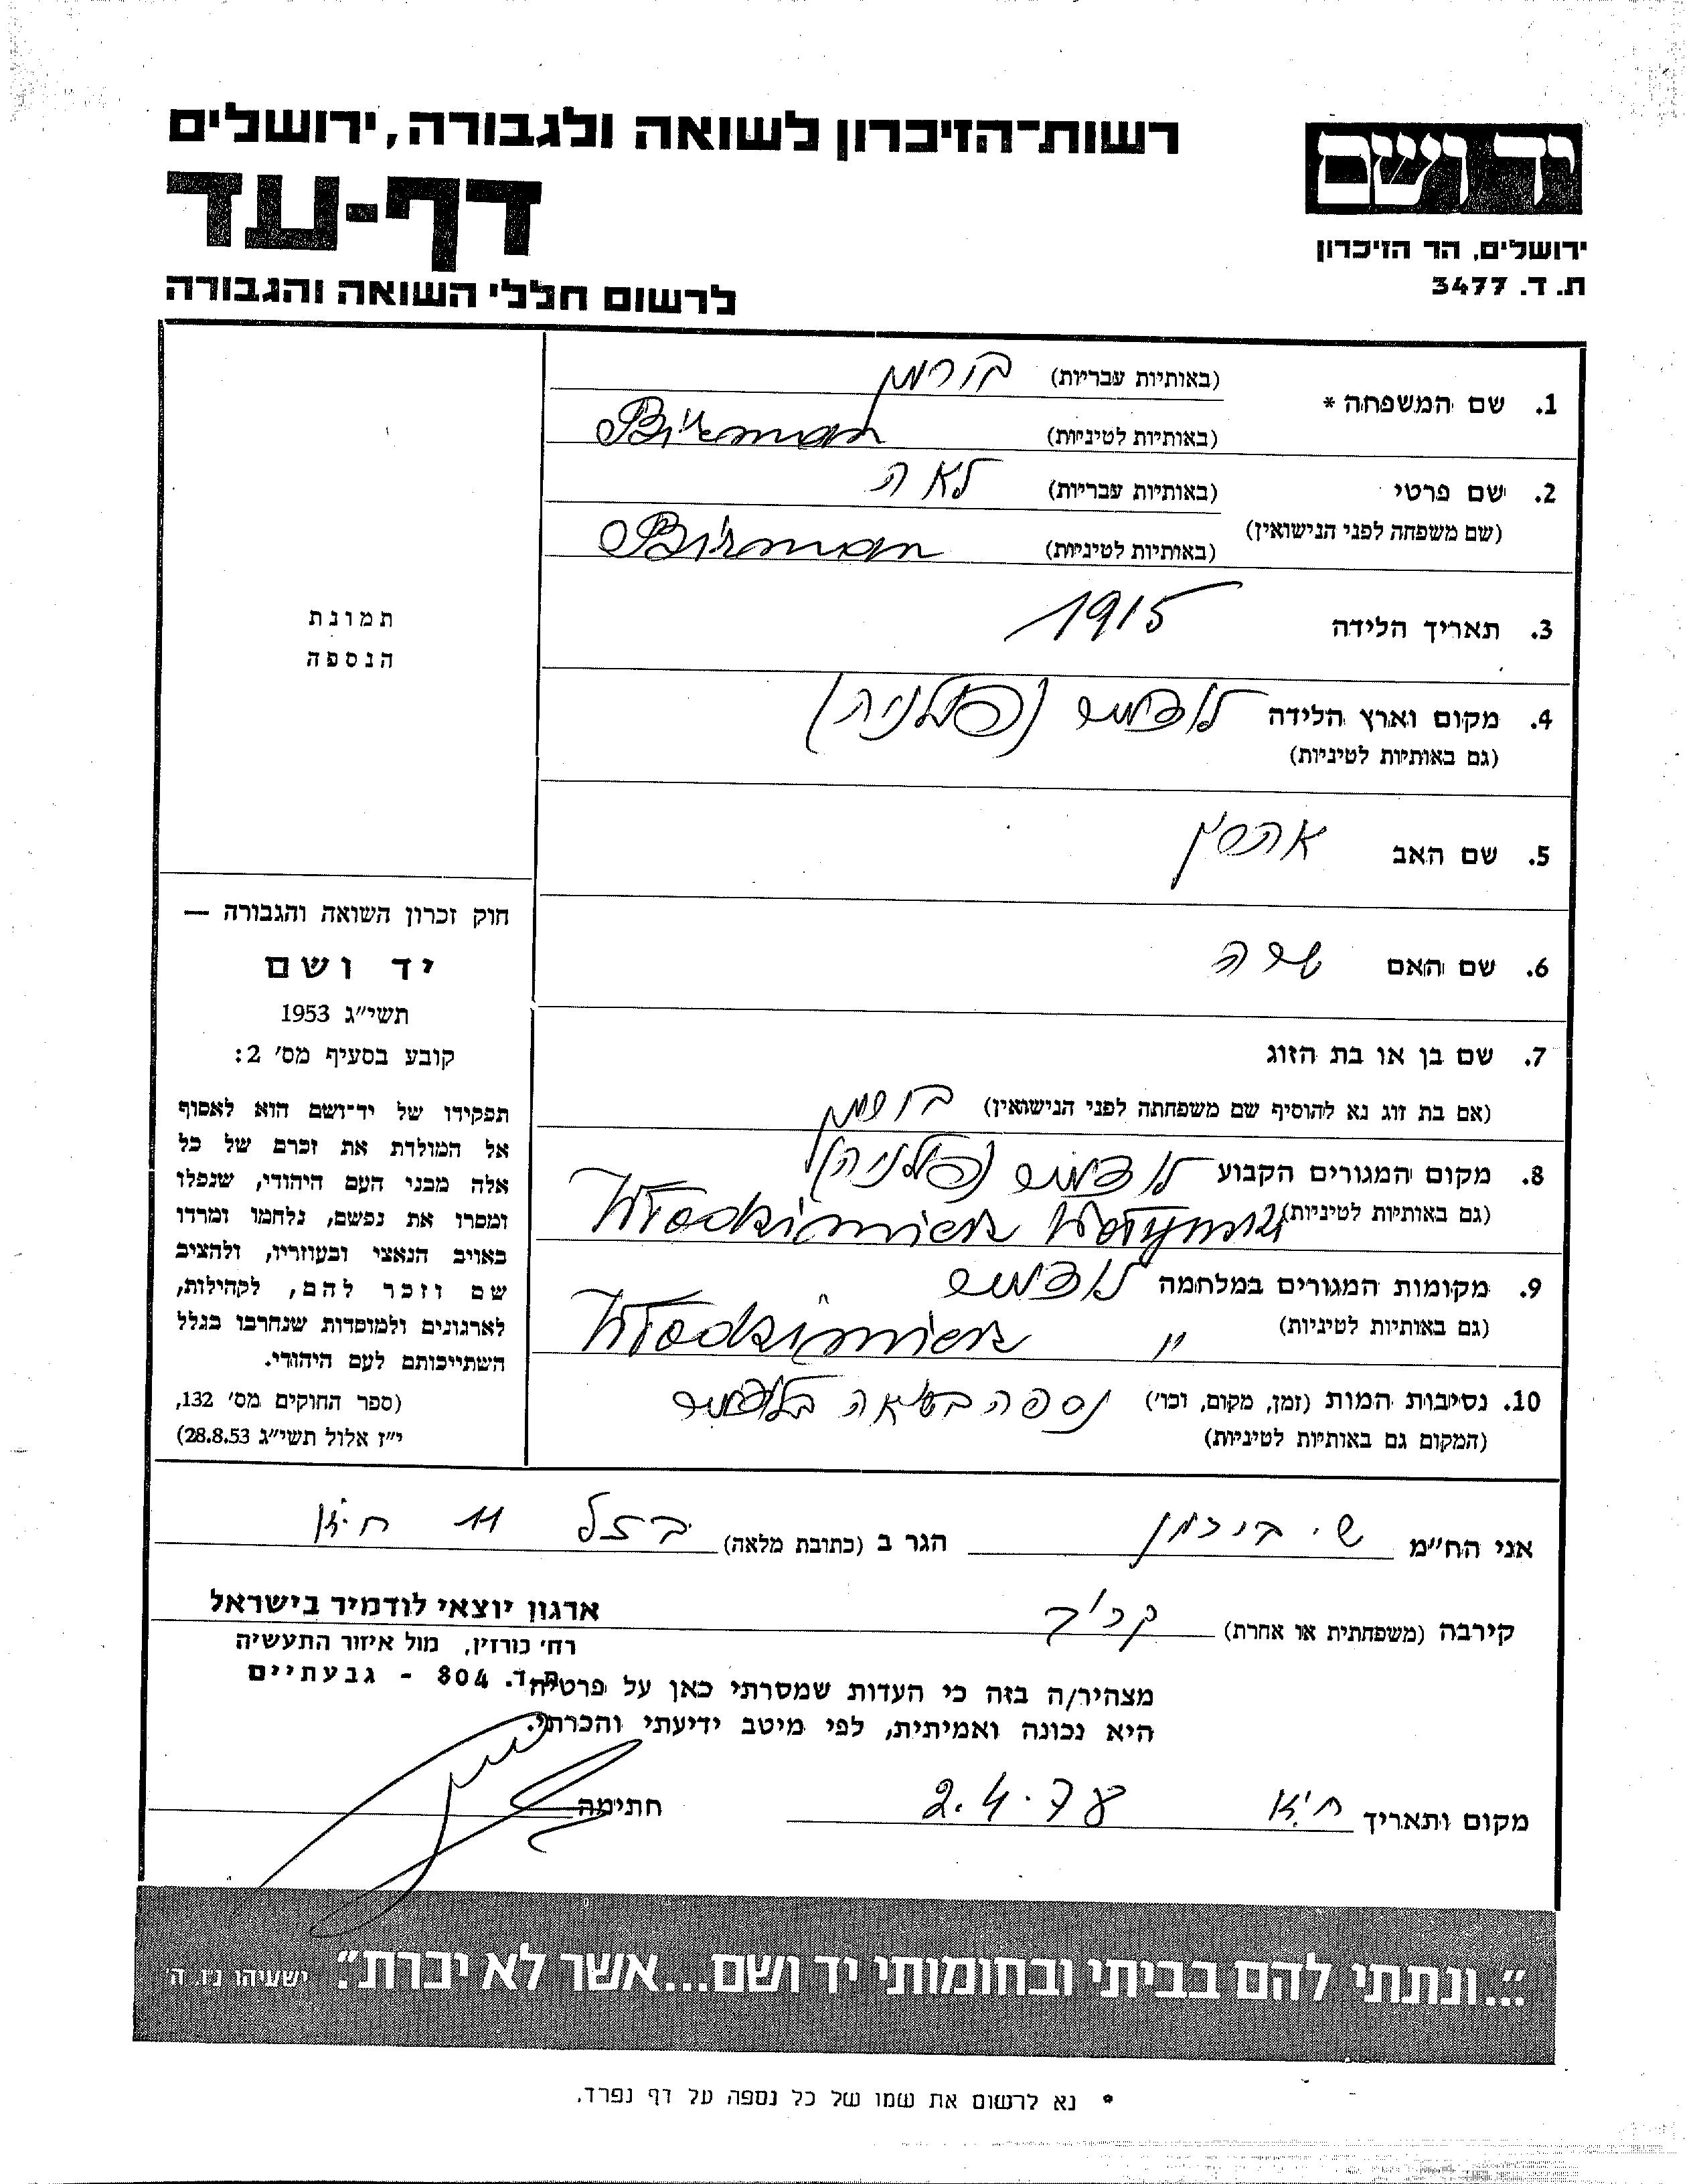 רשות־הזיכרון לשואה ולגבורה, ירושלים
יד ושם
דף-עד
ירושלים, הר הזיכרון
ת. ד. 3477
לרשום חללי השואה והגבורה
1. שם המשפחה * (באותיות עבריות) בורמן
(באותיות לטיניות) Birman
2. שם פרטי (באותיות עבריות) לאה
(שם משפחה לפני הנישואין)
(באותיות לטיניות) Birman
תמונת
הנספה
3. תאריך הלידה 1915
4. מקום וארץ הלידה לודמיר (פולניה)
(גם באותיות לטיניות)
5. שם האב אהרון
6. שם האם שרה
7. שם בן או בת הזוג
(אם בת זוג נא להוסיף שם משפחתה לפני הנישואין) בורמן
8. מקום המגורים הקבוע לודמיר (פולניה)
(גם באותיות לטיניות) Włodzimierz
9. מקומות המגורים במלחמה לודמיר
(גם באותיות לטיניות) " Włodzimierz
10. נסיבות המות (זמן, מקום, וכו') נספה בשואה בלודמיר
(המקום גם באותיות לטיניות)
חוק זכרון השואה והגבורה —
יד ושם
תשי״ג 1953
קובע בסעיף מס' 2:
תפקידו של יד־ושם הוא לאסוף
אל המולדת את זכרם של כל
אלה מבני העם היהודי, שנפלו
ומסרו את נפשם, נלחמו ומרדו
באויב הנאצי ובעוזריו, ולהציב
שם וזכר להם, לקהילות,
לארגונים ולמוסדות שנחרבו בגלל
השתייכותם לעם היהודי.
(ספר החוקים מס' 132,
י״ז אלול תשי״ג 28.8.53)
אני הח״מ ש. בירמן הגר ב (כתובת מלאה) בזל 11 ת״א
קירבה (משפחתית או אחרת) קרוב
ארגון יוצאי לודמיר בישראל
רח' כורזין, מול איזור התעשיה
ת.ד. 804 - גבעתיים
מצהיר/ה בזה כי העדות שמסרתי כאן על פרטיה
היא נכונה ואמיתית, לפי מיטב ידיעתי והכרתי.
מקום ותאריך ת״א 2.4.78 חתימה
"...ונתתי להם בביתי ובחומותי יד ושם...אשר לא יכרת". ישעיהו נ״ו, ה'
* נא לרשום את שמו של כל נספה על דף נפרד.